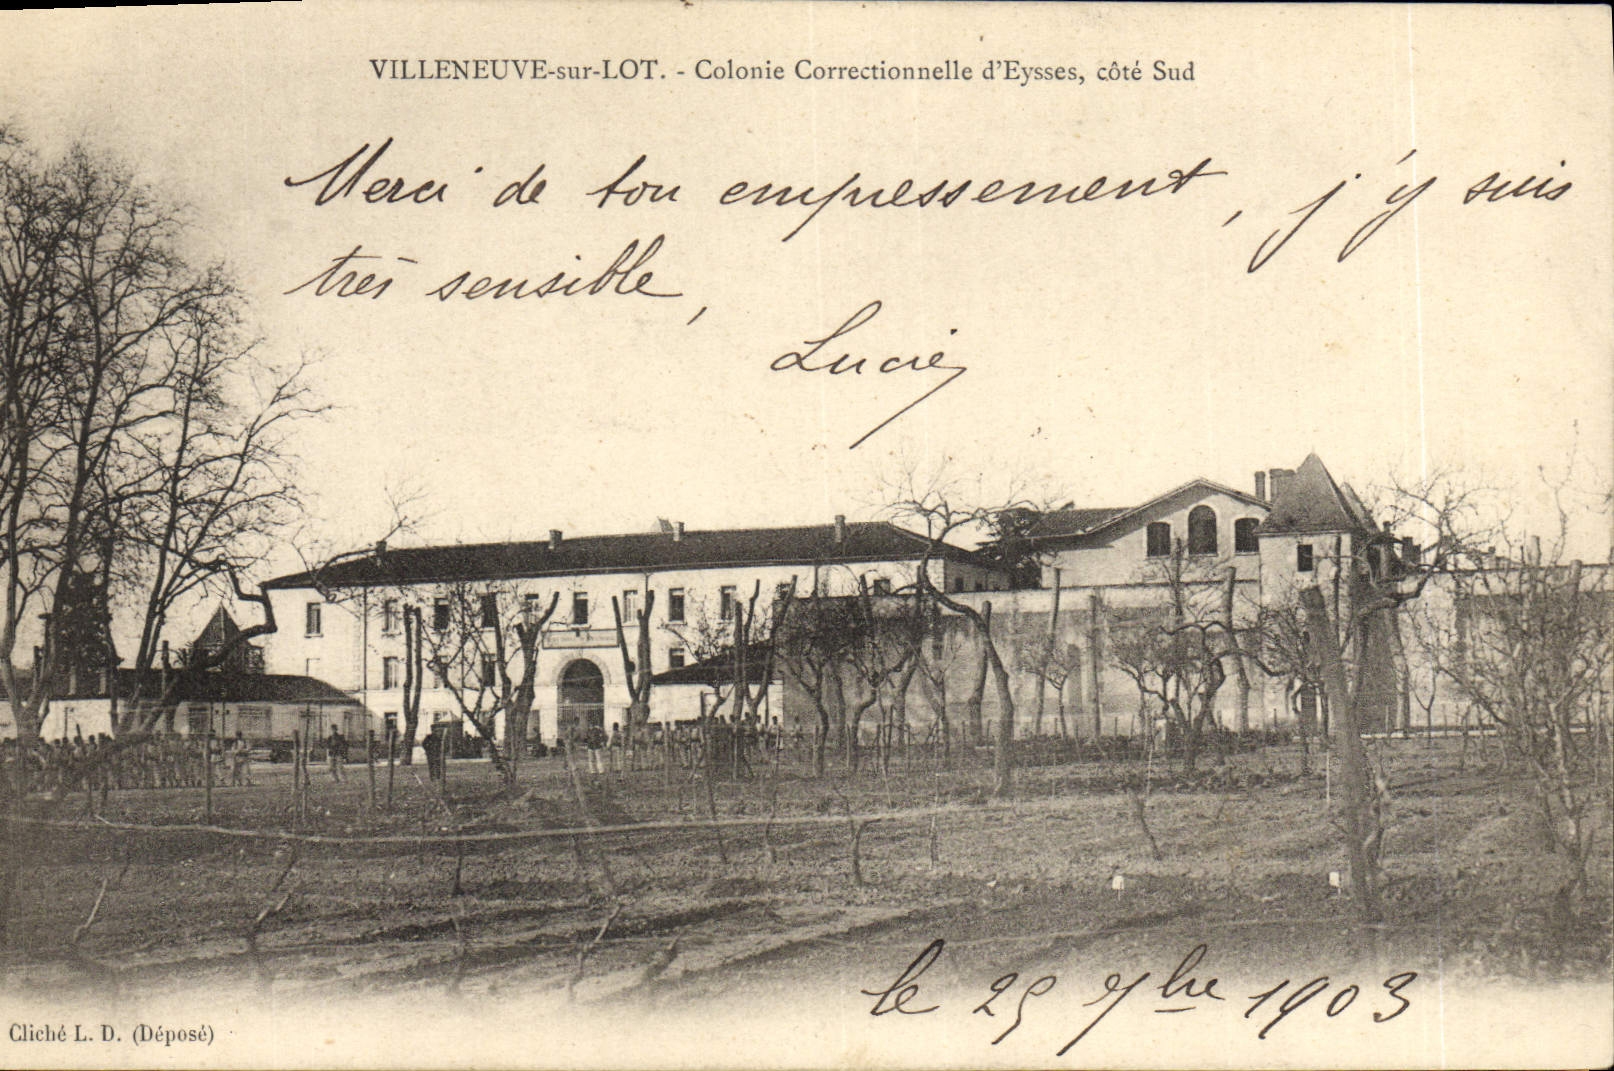 VILLENEUVE-sur-LOT. - Colonie Correctionnelle d'Eysses, côté Sud
Merci de ton empressement, j'y suis
très sensible,
Lucie
le 25 7bre 1903
Cliché L. D. (Déposé)